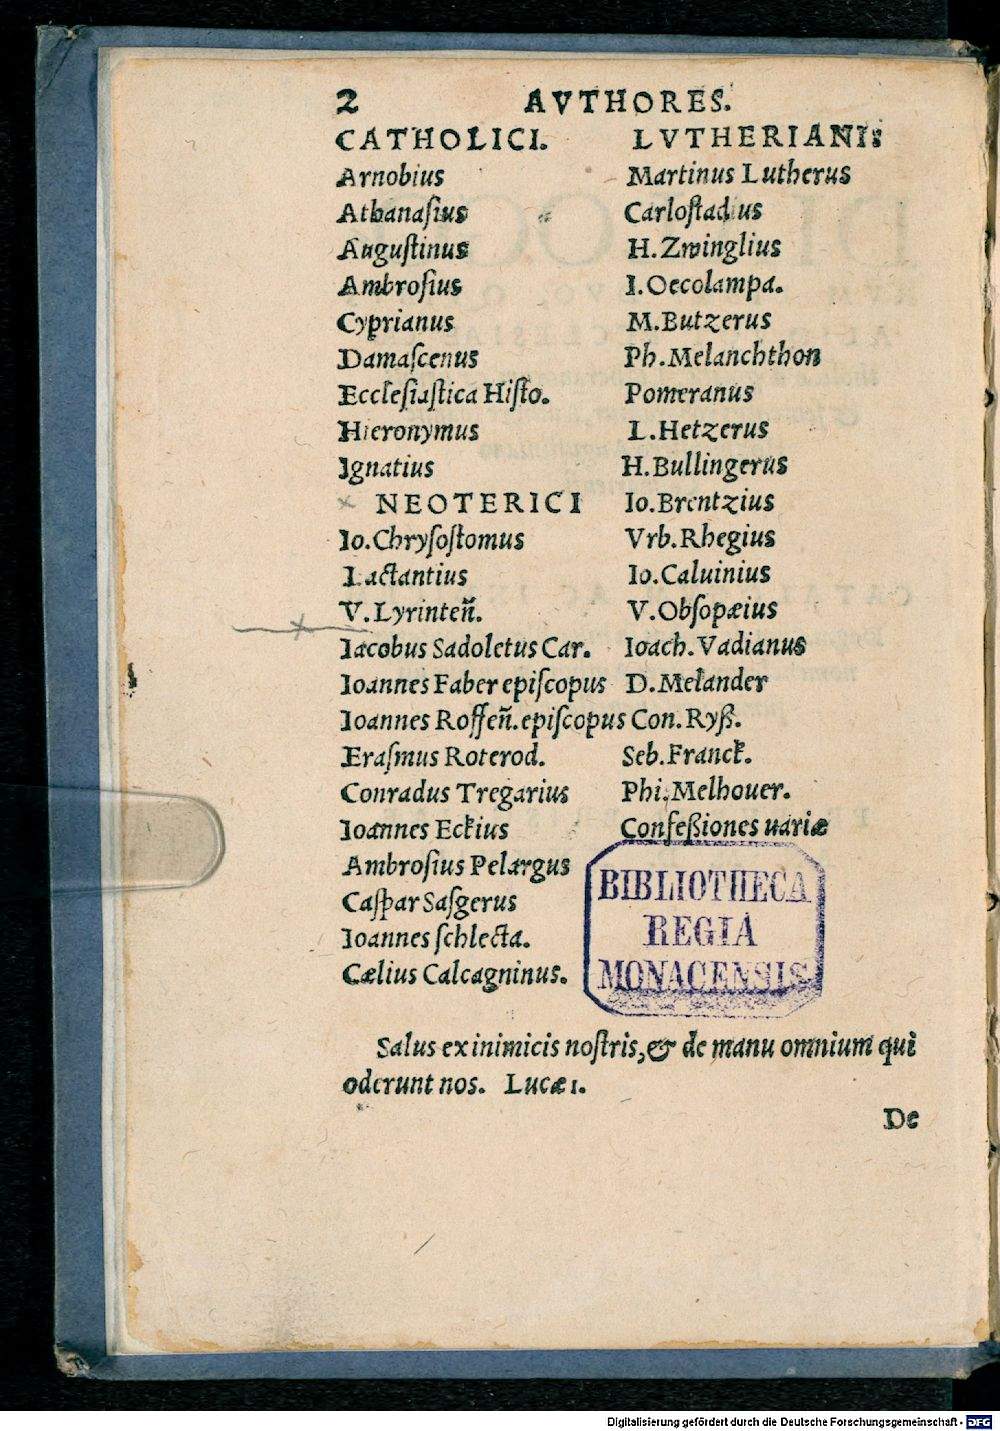 2 AVTHORES.
CATHOLICI.
Arnobius
Athanaſius
Auguſtinus
Ambroſius
Cyprianus
Damaſcenus
Eccleſiaſtica Hiſto.
Hieronymus
Ignatius
NEOTERICI
Io.Chryſoſtomus
Lactantius
V.Lyrinten̄.
Iacobus Sadoletus Car.
Ioannes Faber epiſcopus
Ioannes Roffen̄.epiſcopus
Eraſmus Roterod.
Conradus Tregarius
Ioannes Eckius
Ambroſius Pelargus
Caſpar Saſgerus
Ioannes ſchlecta.
Cælius Calcagninus.
LVTHERIANI:
Martinus Lutherus
Carloſtadius
H.Zwinglius
I.Oecolampa.
M.Butzerus
Ph.Melanchthon
Pomeranus
L.Hetzerus
H.Bullingerus
Io.Brentzius
Vrb.Rhegius
Io.Caluinius
V.Obſopæius
Ioach.Vadianus
D.Melander
Con.Ryß.
Seb.Franck.
Phi.Melhouer.
Confeßiones uariæ
BIBLIOTHECA
REGIA
MONACENSIS
Salus ex inimicis noſtris,& de manu omnium qui
oderunt nos. Lucæ 1.
De
Digitalisierung gefördert durch die Deutsche Forschungsgemeinschaft - DFG